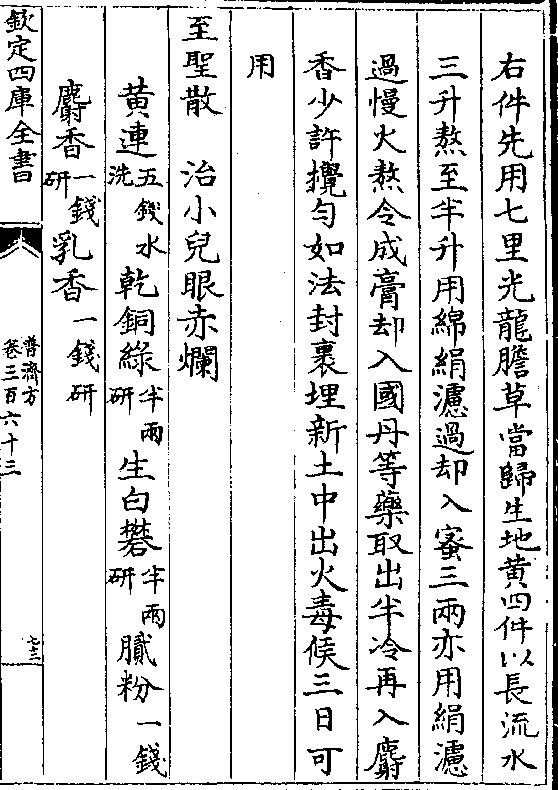 右件先用七里光龍膽草當歸生地黄四件以長流水
三升熬至半升用綿絹濾過却入蜜三兩亦用絹濾
過慢火熬令成膏却入國丹等藥取出半冷再入麝
香少許攪勻如法封裹埋新土中出火毒候三日可
用
至聖散 治小兒眼赤爛
黄連五錢水洗 乾銅綠半兩研 生白礬半兩研 膩粉一錢
麝香一錢研 乳香一錢研
欽定四庫全書
普濟方
卷三百六十三
七三